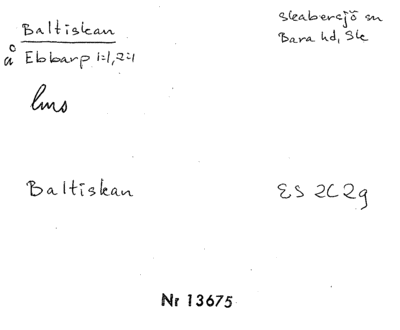 Baltiskan
å Ebbarp 1:1, 2:1
lms
Skabersjö sn
Bara hd, Sk
Baltiskan
ES 2C2g
Nr 13675